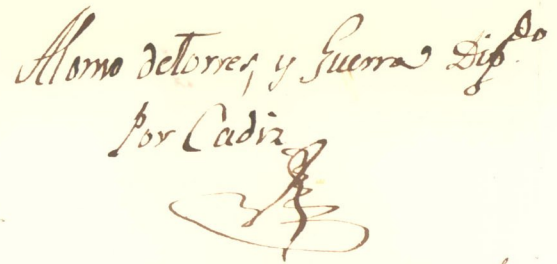 Alonso de Torres, y Guerra Dipdo
Por Cadiz